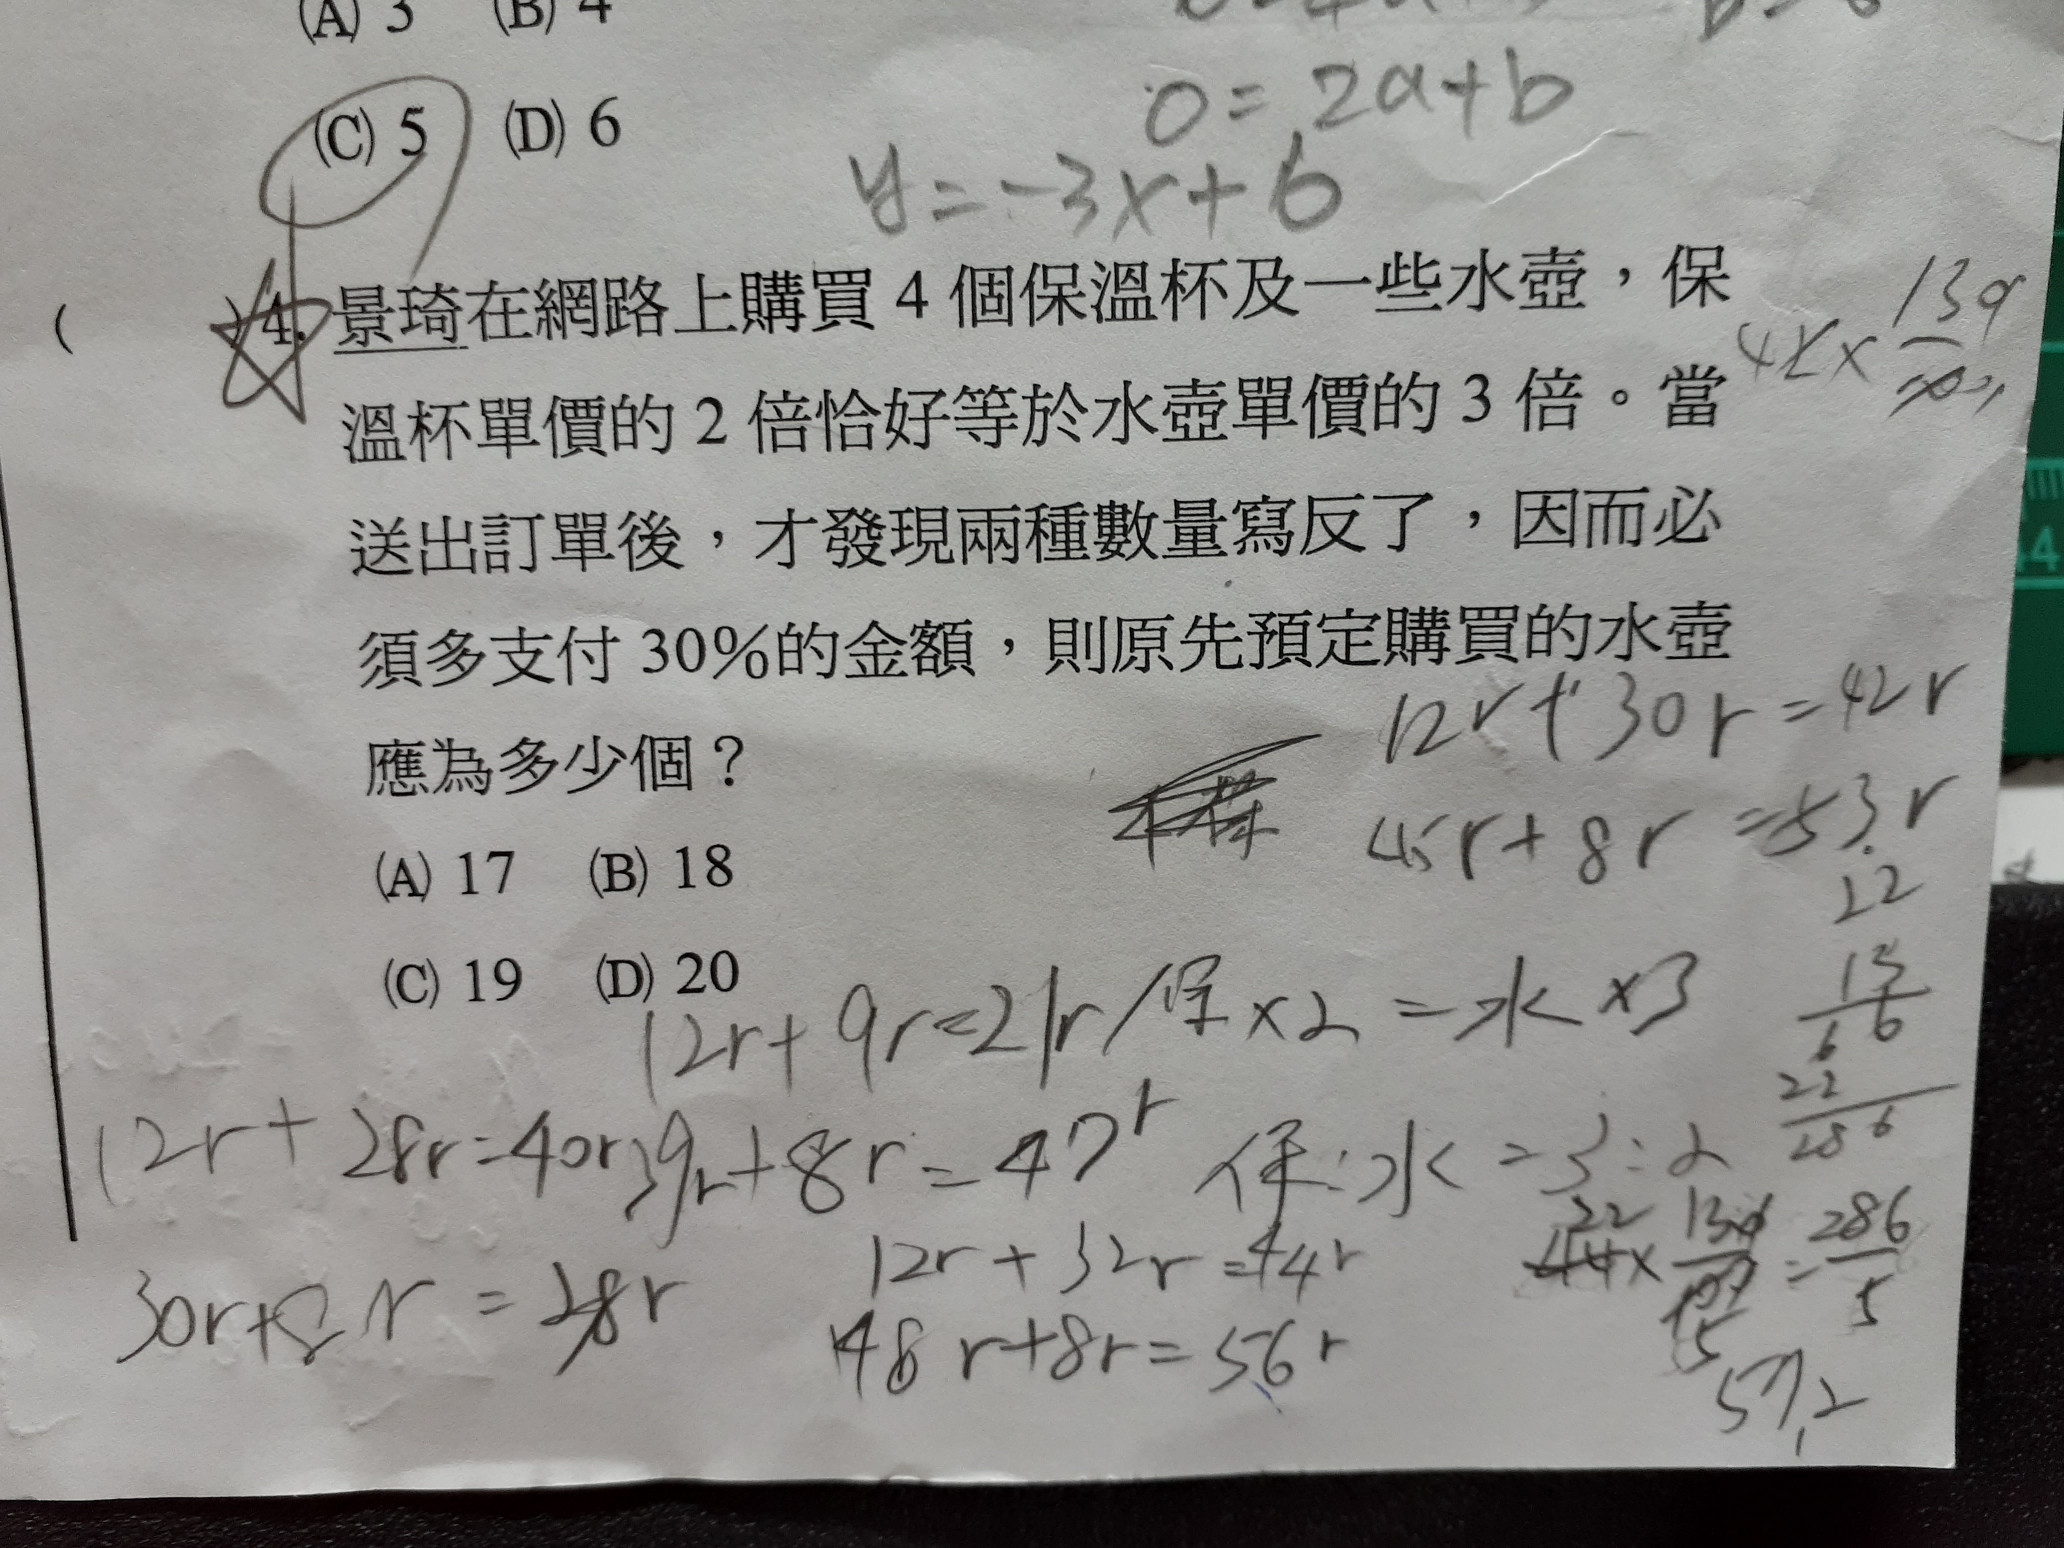 (A) 3 (B) 4
(C) 5 (D) 6
0 = 2a+b
y = -3x+6
( )4. 景琦在網路上購買 4 個保溫杯及一些水壺，保
溫杯單價的 2 倍恰好等於水壺單價的 3 倍。當
送出訂單後，才發現兩種數量寫反了，因而必
須多支付 30%的金額，則原先預定購買的水壺
應為多少個？
12r + 30r = 42r
45r + 8r = 53r
(A) 17 (B) 18
(C) 19 (D) 20
22
13
66
22
286
12r + 9r = 21r / 保 × 2 = 水 × 3
12r + 28r = 40r 39r + 8r = 47r 保：水 = 3：2
12r + 32r = 44r
30r + 8r = 38r
48r + 8r = 56r
286
5
57.2